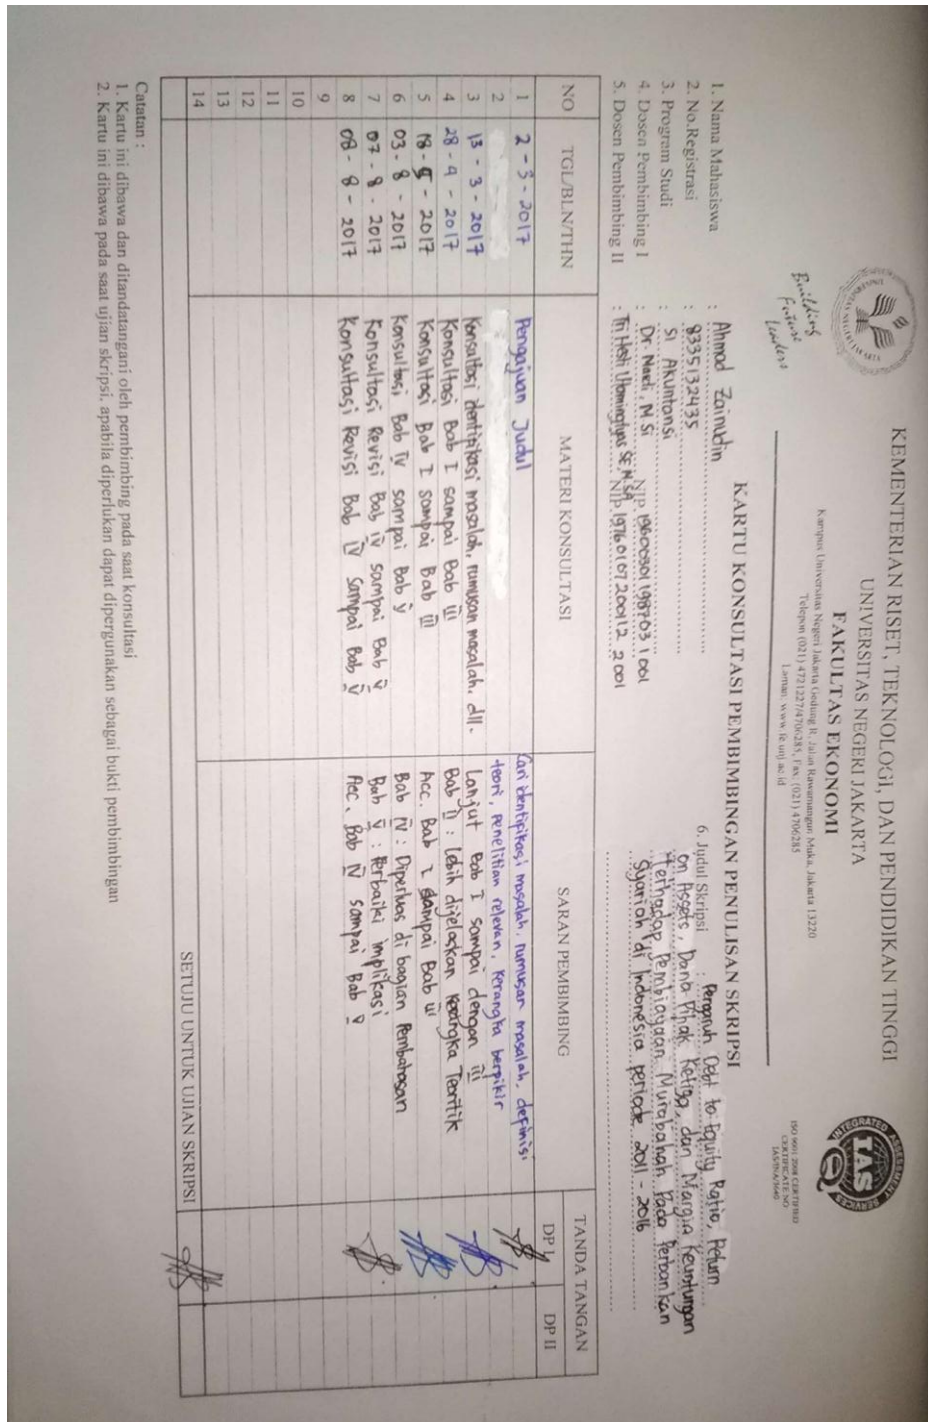 KEMENTERIAN RISET, TEKNOLOGI, DAN PENDIDIKAN TINGGI
UNIVERSITAS NEGERI JAKARTA
FAKULTAS EKONOMI
Kampus Universitas Negeri Jakarta Gedung R, Jalan Rawamangun Muka, Jakarta 13220
Telepon (021) 4721227/4706285, Fax: (021) 4706285
Laman: www.fe.unj.ac.id
Building
Future
Leaders
INTEGRATED ASSESSMENT SERVICES
IAS
ISO 9001:2008 CERTIFIED
CERTIFICATE NO
KARTU KONSULTASI PEMBIMBINGAN PENULISAN SKRIPSI
1. Nama Mahasiswa : Ahmad Zainudin
2. No.Registrasi : 8335132435
3. Program Studi : S1 Akuntansi
4. Dosen Pembimbing I : Dr. Mardi, M.Si NIP. 196003011987031001
5. Dosen Pembimbing II : Tri Hesti Utaminingtyas SE. M.SA NIP. 19760107200112 2001
6. Judul Skripsi : Pengaruh Debt to Equity Ratio, Return
on Assets, Dana Pihak Ketiga, dan Margin Keuntungan
Terhadap Pembiayaan Murabahah Pada Perbankan
Syariah di Indonesia periode 2011 - 2016
NO TGL/BLN/THN MATERI KONSULTASI SARAN PEMBIMBING TANDA TANGAN
DP I DP II
1 2 - 3 - 2017 Pengajuan Judul Cari identifikasi masalah, rumusan masalah, definisi
2 teori, penelitian relevan, kerangka berpikir
3 13 - 3 - 2017 Konsultasi identifikasi masalah, rumusan masalah, dll. Lanjut Bab I sampai dengan III
4 28 - 4 - 2017 Konsultasi Bab I sampai Bab III Bab II : lebih dijelaskan kerangka Teoritik
5 18 - 5 - 2017 Konsultasi Bab I sampai Bab III Acc. Bab I sampai Bab III
6 03 - 8 - 2017 Konsultasi Bab IV sampai Bab V Bab IV : Diperluas di bagian Pembahasan
7 07 - 8 - 2017 Konsultasi Revisi Bab IV sampai Bab V Bab V : Perbaiki implikasi
8 08 - 8 - 2017 Konsultasi Revisi Bab IV sampai Bab V Acc. Bab IV sampai Bab V
9
10
11
12
13
14 SETUJU UNTUK UJIAN SKRIPSI
Catatan :
1. Kartu ini dibawa dan ditandatangani oleh pembimbing pada saat konsultasi
2. Kartu ini dibawa pada saat ujian skripsi, apabila diperlukan dapat dipergunakan sebagai bukti pembimbingan